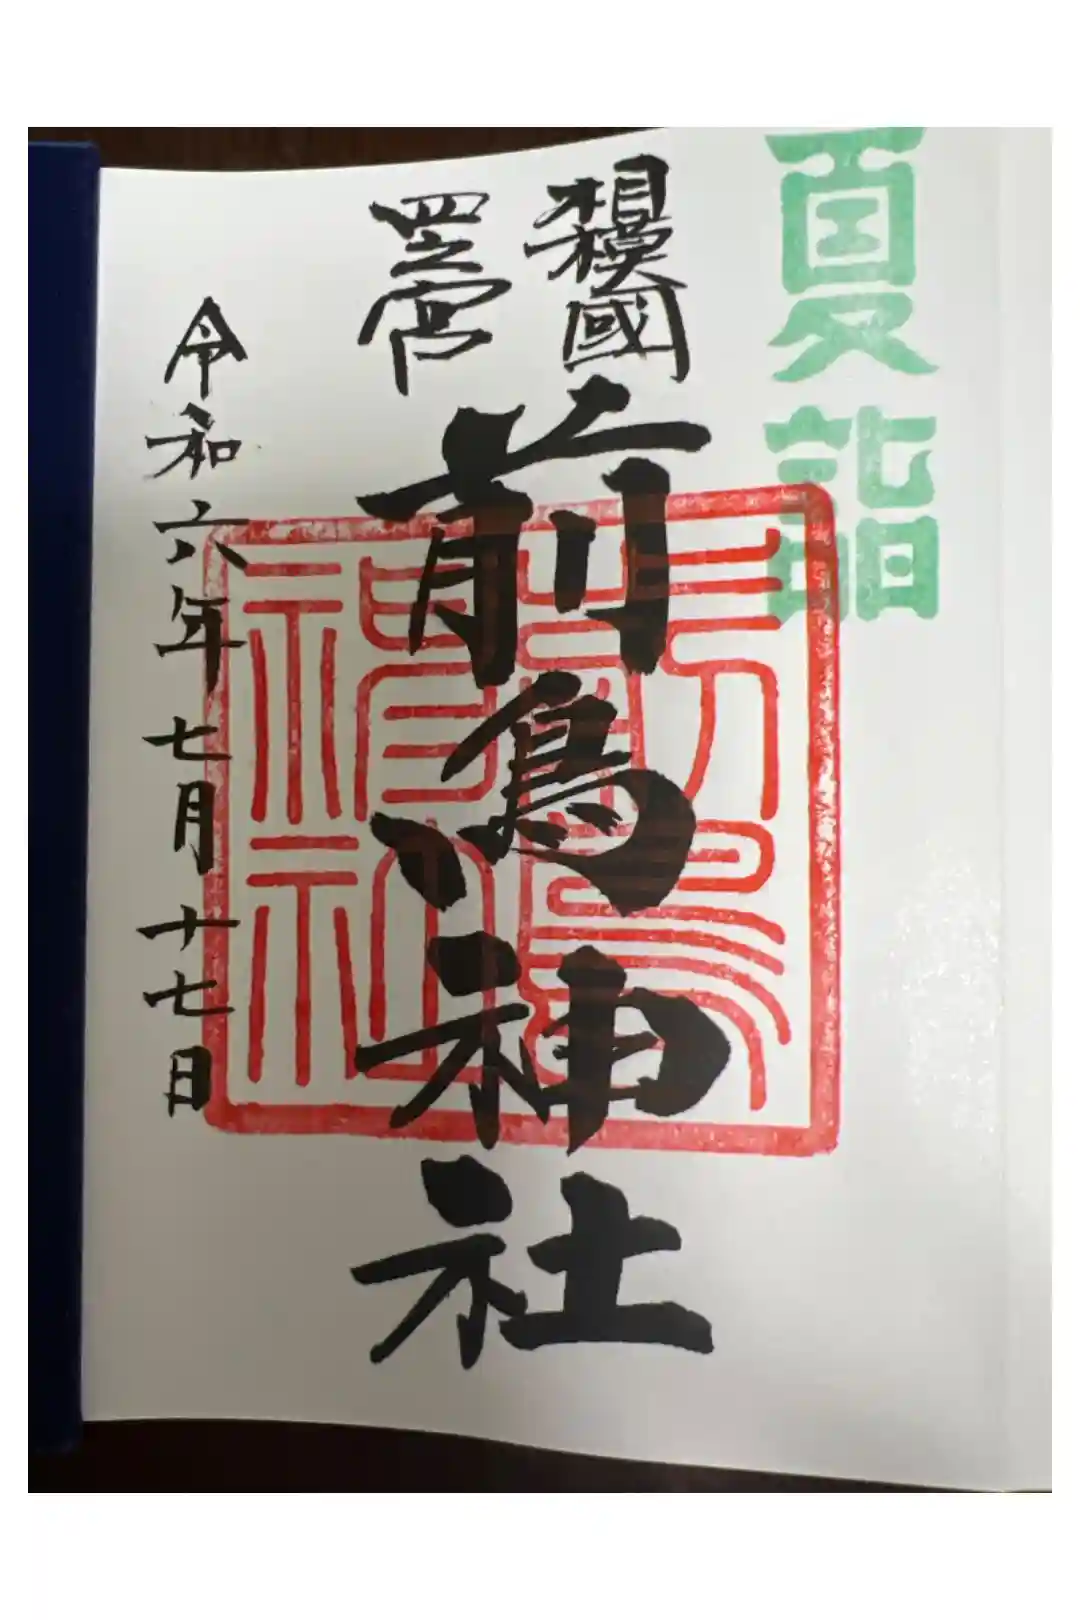 夏詣
相模國
四之宮
前鳥神社
前鳥神社
令和六年七月十七日